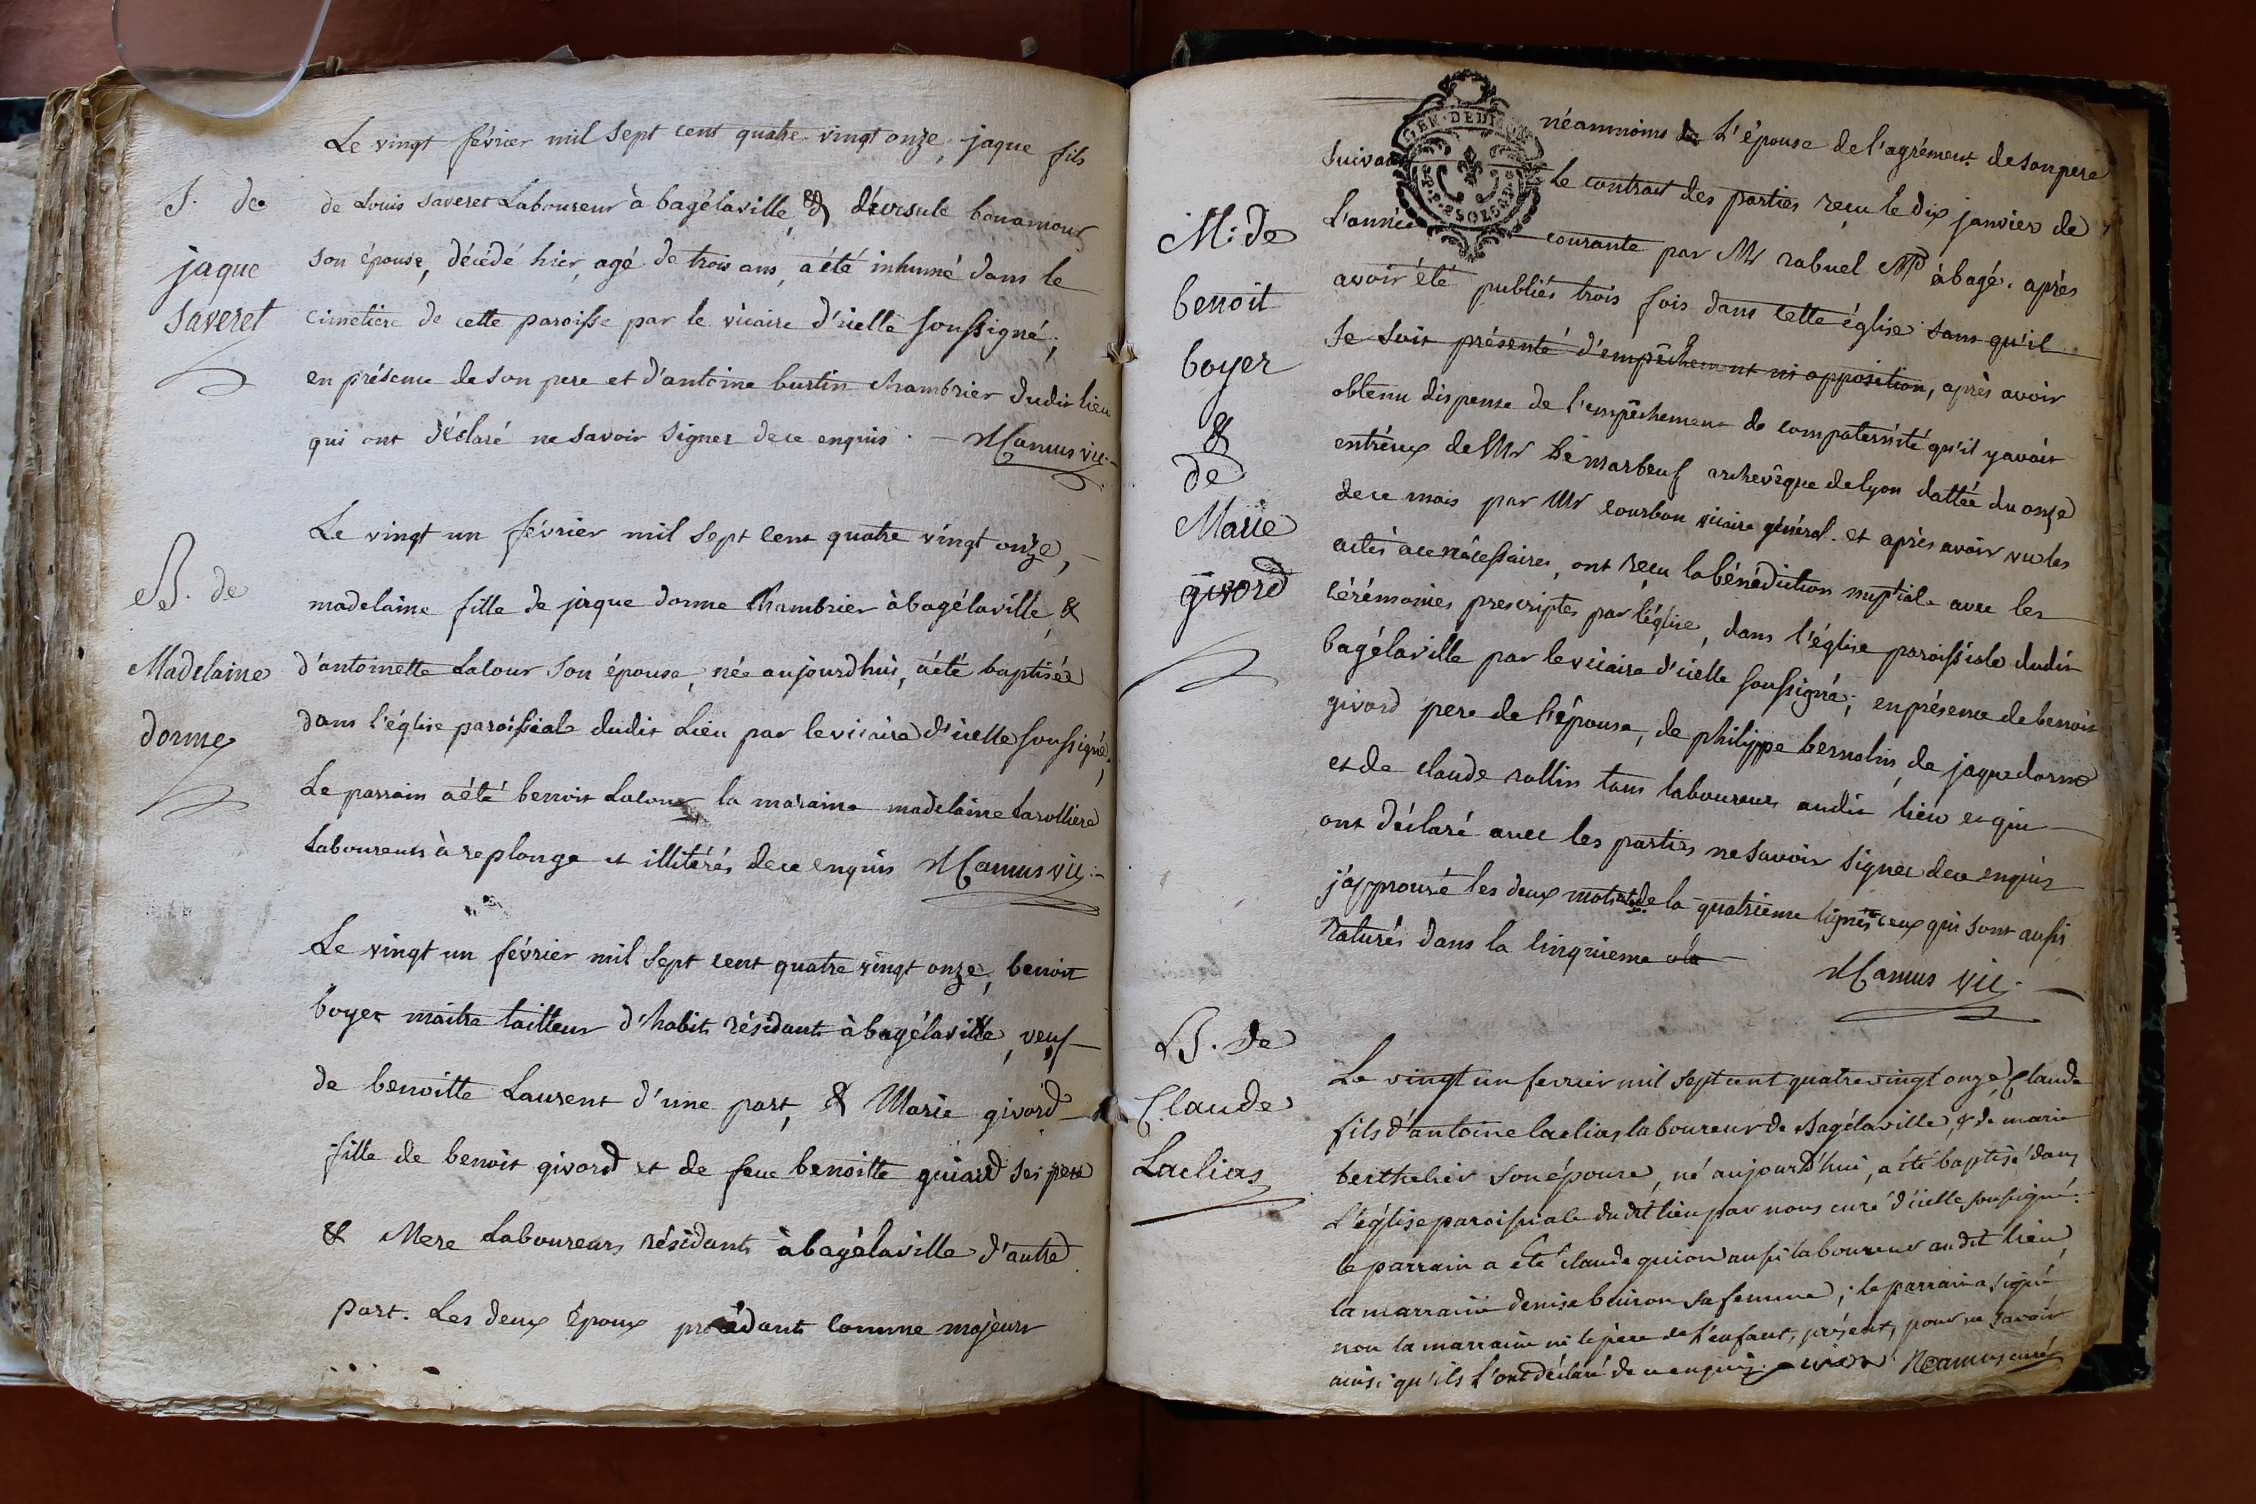 Le vingt février mil sept cent quatre-vingt onze, jaque fils
S. de
jaque
Saveret
de Louis Saveret Laboureur à bagélaville, & d'ursule bonamour
son épouse, décédé hier, agé de trois ans, a été inhumé dans le
cimetiere de cette paroisse par le vicaire d'icelle soussigné;
en présence de son pere et d'antoine burtin chambrier dudit lieu
qui ont déclaré ne savoir signer de ce enquis. — N Camus vic.
B. de
Madelaine
dorme
Le vingt un février mil sept cent quatre vingt onze,
madelaine fille de jaque dorme chambrier à bagélaville, &
d'antoinette Latour son épouse, née aujourdhui, a été baptisée
dans l'église paroissiale dudit Lieu par le vicaire d'icelle soussigné;
Le parrain a été benoit Latour la maraine madelaine Larolliere
Laboureurs à replonge et illitérés de ce enquis N Camus vic.
Le vingt un février mil sept cent quatre vingt onze, benoit
boyer maitre tailleur d'habits résidant à bagélaville, veuf
de benoitte Laurent d'une part, & Marie givord
fille de benoit givord et de feue benoitte guiard ses pere
& Mere Laboureurs résidants à bagélaville d'autre
part. Les deux époux procédants comme majeurs
GEN. DE DIJON
M: de
benoit
boyer
&
de
Marie
givord
néammoins L'épouse de l'agrément de son pere
suivant le contrat des parties reçu le dix janvier de
l'année courante par Mr rabuel à bagé. après
avoir été publiés trois fois dans cette église sans qu'il
se soit présenté d'empêchement ni opposition, après avoir
obtenu dispense de l'empêchement de compaternité qu'il y avoit
entr'eux de Mr De marbeuf archevêque de lyon dattée du onze
de ce mois par Mr courbon vicaire général. et après avoir vu les
actes à ce nécessaires, ont reçu la bénédiction nuptiale avec les
cérémonies prescriptes par l'église, dans l'église paroissiale dudit
bagélaville par le vicaire d'icelle soussigné; en présence de benoit
givord pere de l'épouse, de philippe bernolin, de jaque dorme
et de claude rollin tous laboureurs audit lieu et qui
ont déclaré avec les parties ne savoir signer de ce enquis
j'approuve les deux mots de la quatrieme ligne et ceux qui sont aussi
raturés dans la cinquieme
N Camus vic.
B. de
Claude
Laclias
Le vingt un fevrier mil sept cent quatre vingt onze Claude
fils d'antoine laclias laboureur de Bagélaville, & de marie
berthelier son épouse, né aujourd'hui, a été baptisé dans
L'église paroissiale dudit lieu par nous curé d'icelle soussigné.
le parrain a été Claude guion aussi laboureur audit lieu,
la marraine denise buiron sa femme; le parrain a signé
non la marraine ni le père de l'enfant, présent, pour ne savoir
ainsi qu'ils l'ont déclaré de ce enquis. guion N Camus curé